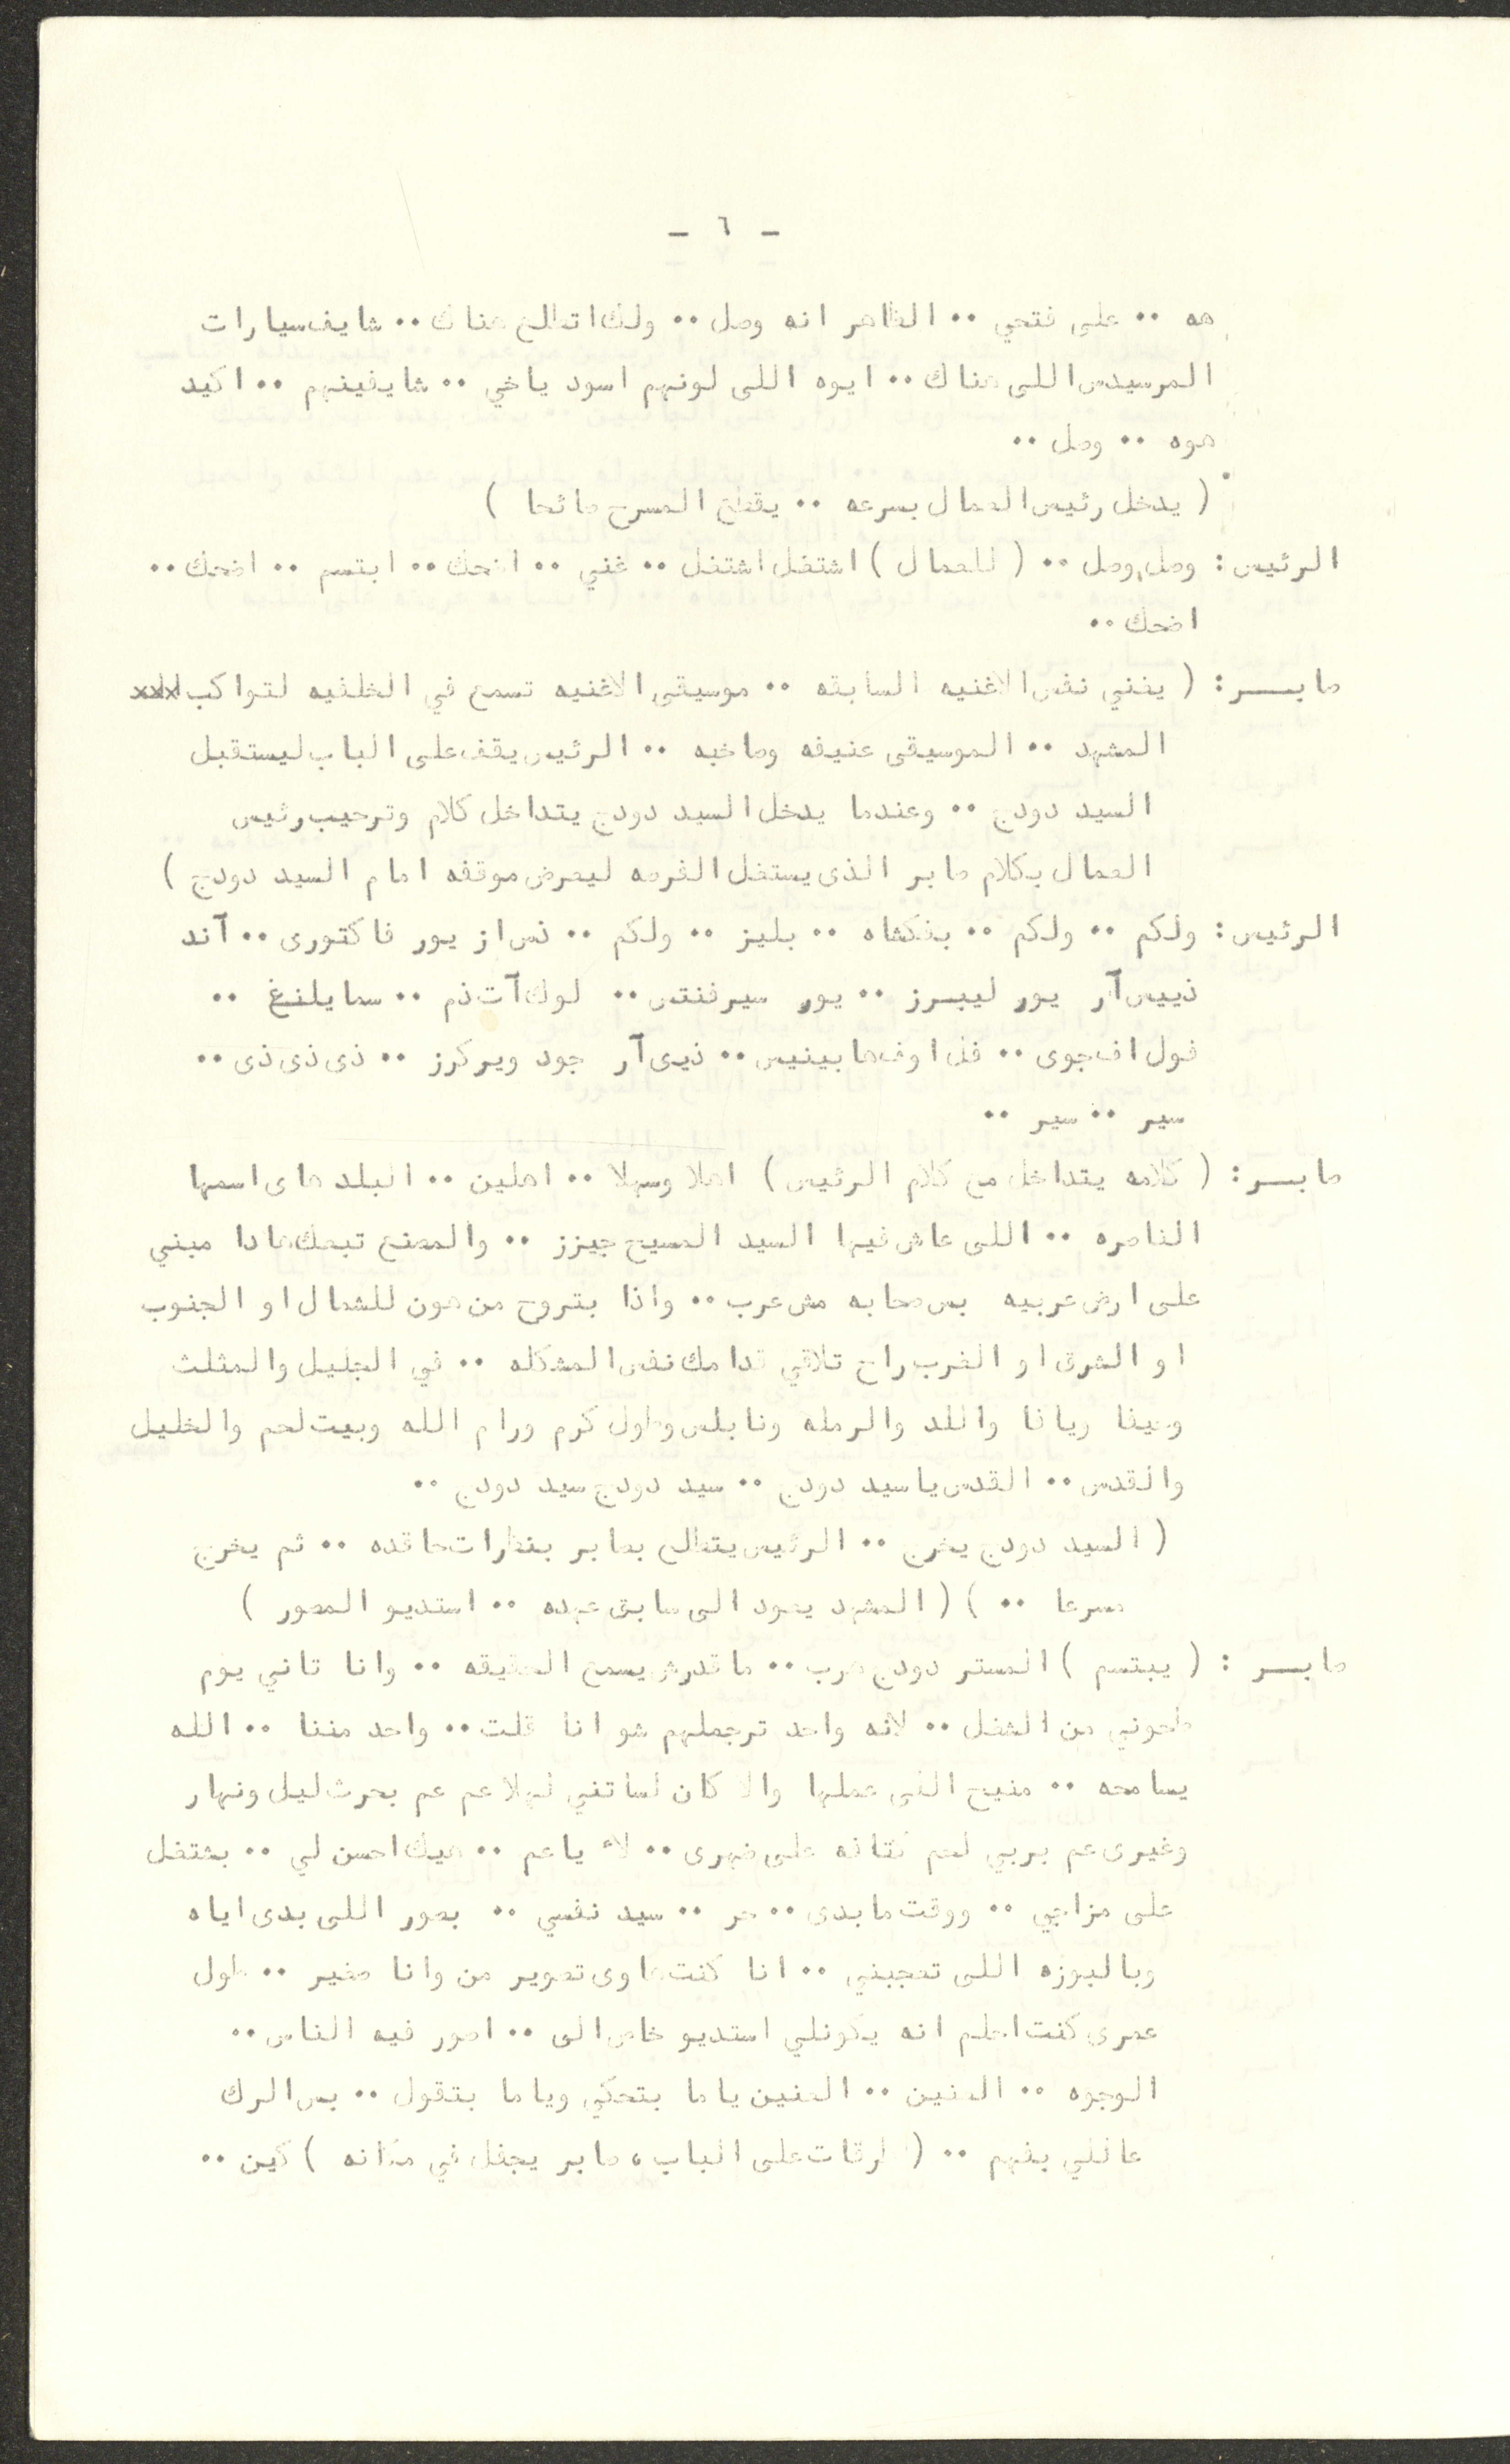 - ٦ -
هه .. على فتحي .. الظاهر انه وصل .. ولك اتطلع هناك .. شايف سيارات
المرسيدس اللي هناك .. ايوه اللي لونهم اسود ياخي .. شايفينهم .. اكيد
هوه .. وصل ..
( يدخل رئيس العمال بسرعه .. يقطع المسرح صائحا )
الرئيس : وصل وصل .. ( للعمال ) اشتغل اشتغل .. غني .. اضحك .. ابتسم .. اضحك ..
اضحك ..
صابـــر : ( يغني نفس الاغنيه السابقه .. موسيقى الاغنيه تسمع في الخلفيه لتواكب
المشهد .. الموسيقى عنيفه وصاخبه .. الرئيس يقف على الباب ليستقبل
السيد دودج .. وعندما يدخل السيد دودج يتداخل كلام وترحيب رئيس
العمال بكلام صابر الذي يستغل الفرصه ليعرض موقفه امام السيد دودج )
الرئيس : ولكم .. ولكم .. بفكشاه .. بليز .. ولكم .. ذس از يور فاكتوري .. آند
ذييس آر يور ليبرز .. يور سيرفنتس .. لوك آت ذم .. سمايلنغ ..
فول اف جوي .. فل اوف هابينيس .. ذيي آر جود ويركرز .. ذي ذي ذي ..
سير .. سير ..
صابـــر : ( كلامه يتداخل مع كلام الرئيس ) اهلا وسهلا .. اهلين .. البلد هاي اسمها
الناصره .. اللي عاش فيها السيد المسيح جيزز .. والمصنع تبعك هادا مبني
على ارض عربيه بس صحابه مش عرب .. واذا بتروح من هون للشمال او الجنوب
او الشرق او الغرب راح تلاقي قدامك نفس المشكله .. في الجليل والمثلث
وحيفا ويافا واللد والرمله ونابلس وطول كرم ورام الله وبيت لحم والخليل
والقدس .. القدس يا سيد دودج .. سيد دودج سيد دودج ..
( السيد دودج يخرج .. الرئيس يتطلع بصابر بنظرات حاقده .. ثم يخرج
مسرعا .. ) ( المشهد يعود الى سابق عهده .. استديو المصور )
صابـــر : ( يبتسم ) المستر دودج هرب .. ما قدرش يسمع الحقيقه .. وانا تاني يوم
طحوني من الشغل .. لانه واحد ترجملهم شو انا قلت .. واحد مننا .. الله
يسامحه .. منيح اللي عملها والا كان لساتني لهلا عم عم بحرث ليل ونهار
وغيري عم بربي لحم كتافه على ضهري .. لأ يا عم .. هيك احسن لي .. بشتغل
على مزاجي .. ووقت ما بدي .. حر .. سيد نفسي .. بصور اللي بدي اياه
وبالبوزه اللي تعجبني .. انا كنت هاوي تصوير من وانا صغير .. طول
عمري كنت احلم انه يكونلي استديو خاص الي .. اصور فيه الناس ..
الوجوه .. العنين .. العنين ياما بتحكي وياما بتقول .. بس الرك
عاللي بفهم .. ( طرقات على الباب ، صابر يجفل في مكانه ) كين ..